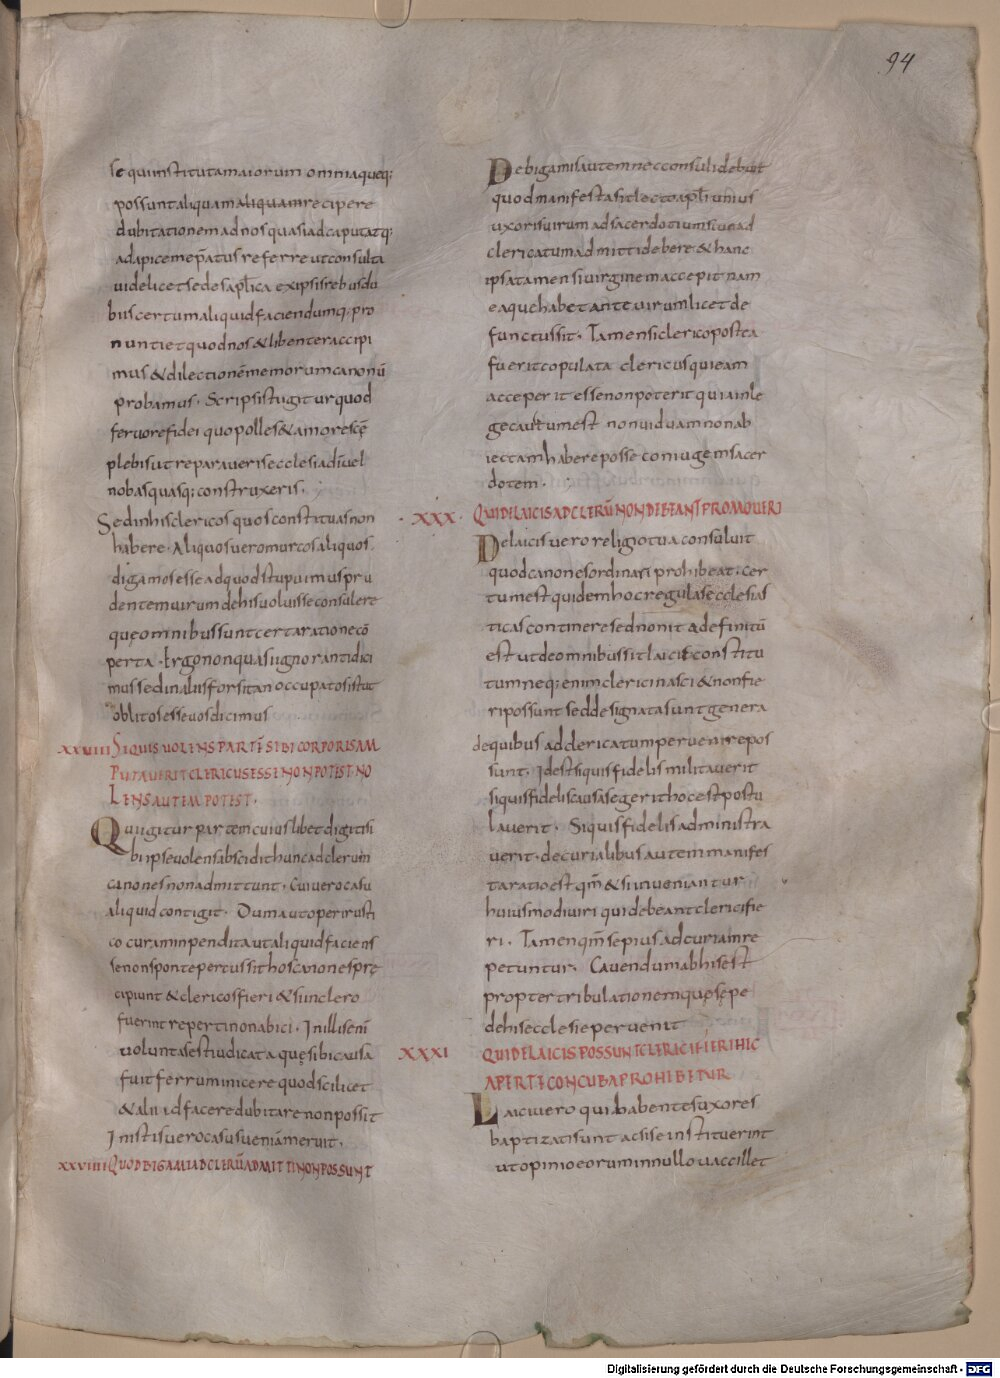 94
sequi instituta maiorum omniaqueq;
possunt aliquam aliquam recipere
dubitationem ad nos quasi ad caput atq;
ad apicem ep̄atus referre ut consulta
uidelicet sedes apl̄ica ex ipsis rebus du
bus certum aliquid faciendumq; pro
nuntiet quod nos & libenter accipi
mus & dilectionē memorum canonū
probamus. Scripsisti igitur quod
feruore fidei quo polles & amore scę
plebis ut reparaueris ecclesias dī uel
nobas quasq; construxeris.
Sed in his clericos quos constituas non
habere. Aliquos uero murcos aliquos
digamos esse ad quod stupuimus pru
dentem uirum de his uoluisse consulere
quę omnibus sunt certa ratione cō
perta. Ergo non quasi ignoranti dici
mus sed in aliis forsitan occupatos is tut
oblitos esse uos dicimus
XXVIII SI QUIS VOLENS PARTĒ SIBI CORPORIS AM
PUTAVERIT CLERICUS ESSE NON POTEST NO
LENS AUTEM POTEST.
Qui igitur partem cuiuslibet digiti si
bi ipse uolens abscidit hunc ad clerum
canones non admittunt. Cui uero casu
aliquid contigit. Dum aut operi rusti
co curam inpendit aut aliquid faciens
se non sponte percussit hos canones prę
cipiunt & clericos fieri & si in clero
fuerint reperti non abici. In illis enī
uoluntas est iudicata quę sibi causa
fuit ferrum inicere quod scilicet
& alii id facere dubitare non possit
In istis uero casus ueniā meruit.
XXVIIII QUOD BIGAMI AD CLERŪ ADMITTI NON POSSUNT
De bigamis autem nec consuli debuit
quod manifesta sit lectio apl̄i unius
uxoris uirum ad sacerdotium siue ad
clericatum admitti debere & hanc
ipsa tamen si uirginem accepit nam
ea que habet ante uirum licet de
functus sit. Tamen si clerico postea
fuerit copulata clericus qui eam
acceperit esse non poterit quia in le
ge cautum est non uiduam non ab
iectam habere posse coniugem sacer
dotem.
XXX QUI DE LAICIS AD CLERŪ NON DEBEANT PROMOUERI
De laicis uero religio tua consuluit
quod canones ordinari prohibeat. Cer
tum est quidem hoc regulas ecclesias
ticas continere sed non ita definitū
est ut de omnibus sit laicis constitu
tum neq; enim clerici nasci & non fie
ri possunt sed designata sunt genera
de quibus ad clericatum peruenire pos
sunt. Id est si quis fidelis militauerit
si quis fidelis causas egerit hoc est postu
lauerit. Si quis fidelis administra
uerit. de curialibus autem manifes
ta ratio est qm̄ & si inueniantur
huiusmodi uiri qui debeant clerici fie
ri. Tamen qm̄ sepius ad curiam re
petuntur. Cauendum ab his est
propter tribulationem quę sępe
de his ecclesie peruenit
XXXI QUI DE LAICIS POSSUNT CLERICI FIERI HIC
APERTE CONCUBA PROHIBETUR
Laici uero qui habentes uxores
baptizati sunt ac si se instituerint
ut opinio eorum in nullo uaccillet
Digitalisierung gefördert durch die Deutsche Forschungsgemeinschaft - DFG